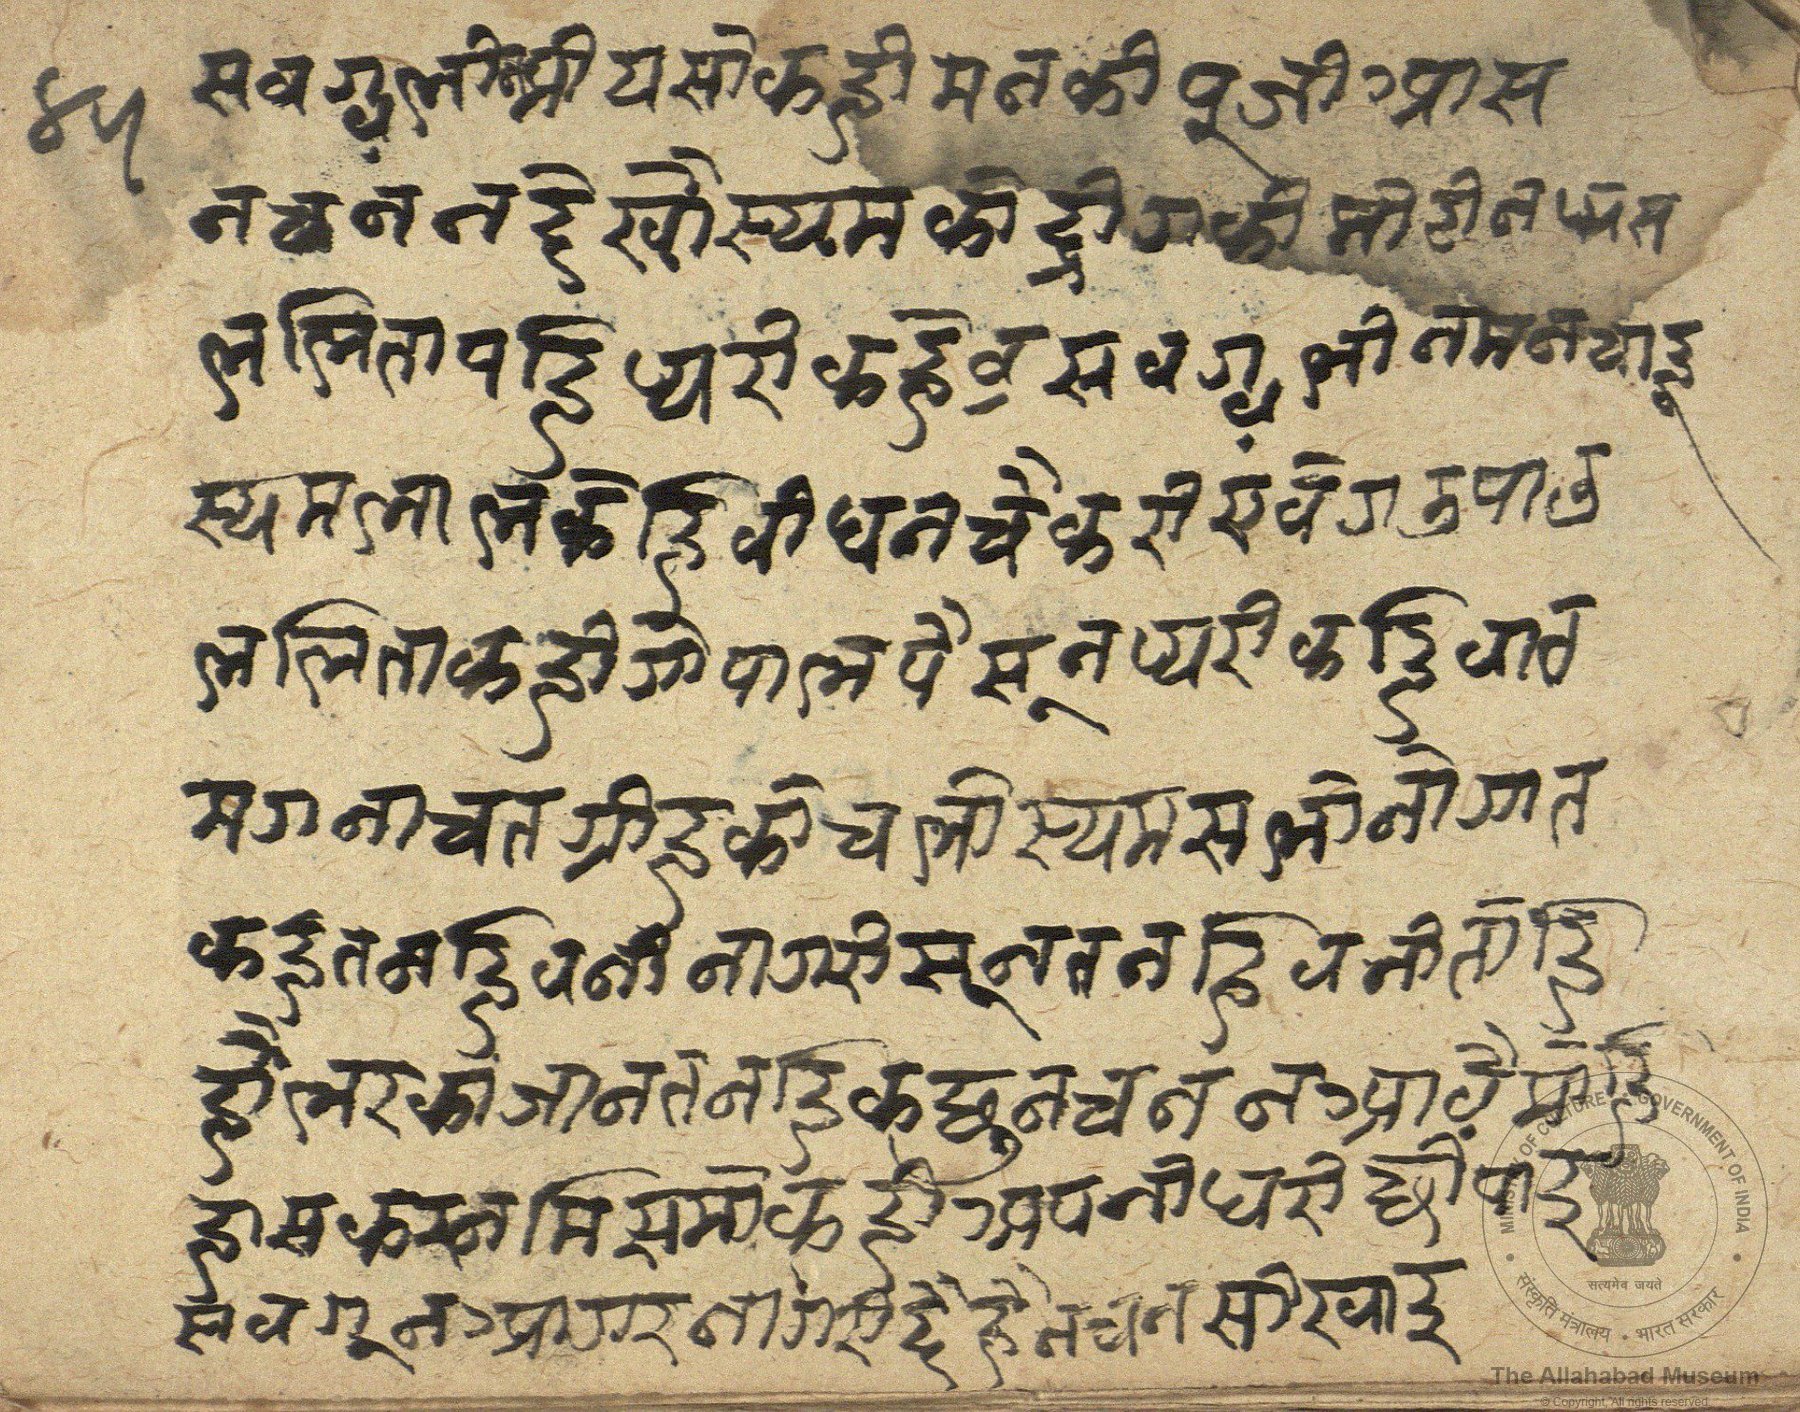 ४५
सव ग्वलीनी य सो कही मन की पूजी आस
नचन न देखौ स्यम को द्री ग की मी टी न प्यस
ललिता पहि प्यरी कहे व सव ग्वली न मन चाइ
स्यम लाल के हि वी घन चै करी सवै गउ पाउ
ललिता कही गोपाल पै सून प्यरी कहि वात
मगनाचत ग्रीह को चली स्यम सलोनो गात
कहत नहि वनी नागरी सूनत नहि वनी तोहि
हौ लरका जानत नहि कछु नचन न आवै मोहि
हास करन मिस मो कही अपनी घरी छीपाइ
सव गून आगर नागरी दै है नचन सीखाइ
MINISTRY OF CULTURE • GOVERNMENT OF INDIA
सत्यमेव जयते
संस्कृति मंत्रालय • भारत सरकार
The Allahabad Museum
© Copyright, All rights reserved